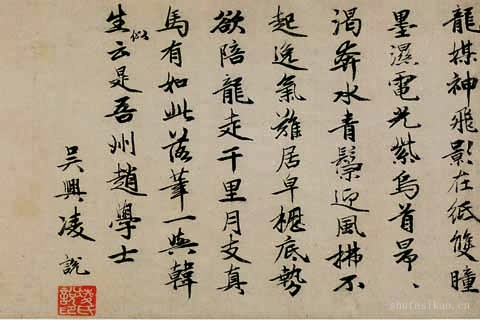 龍媒神飛影在紙雙瞳
墨濕電光紫烏首昂、
渴奔水青鬃迎風拂不
起逸氣難居皁櫪底勢
欲陪龍走千里月支真
馬有如此落筆一與韓
生似云是吾州趙學士
吳興凌說